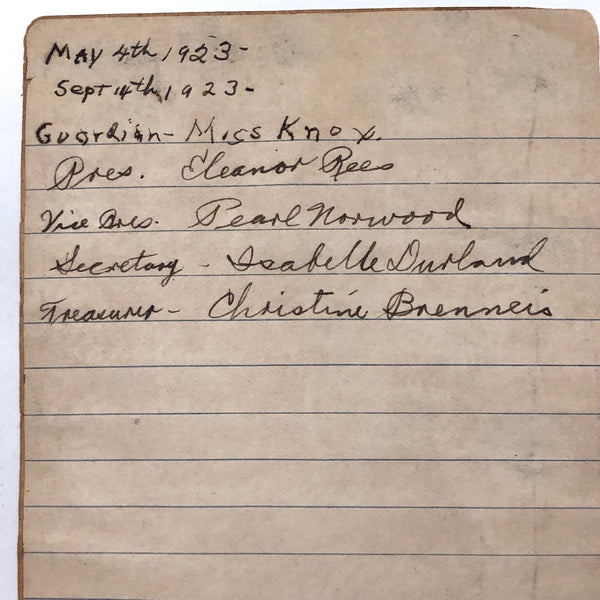 May 4th 1923-
Sept 14th 1923-
Guardian- Miss Knox.
Pres. Eleanor Rees
Vice Pres. Pearl Norwood
Secretary - Isabelle Durland
Treasurer - Christine Brenneis